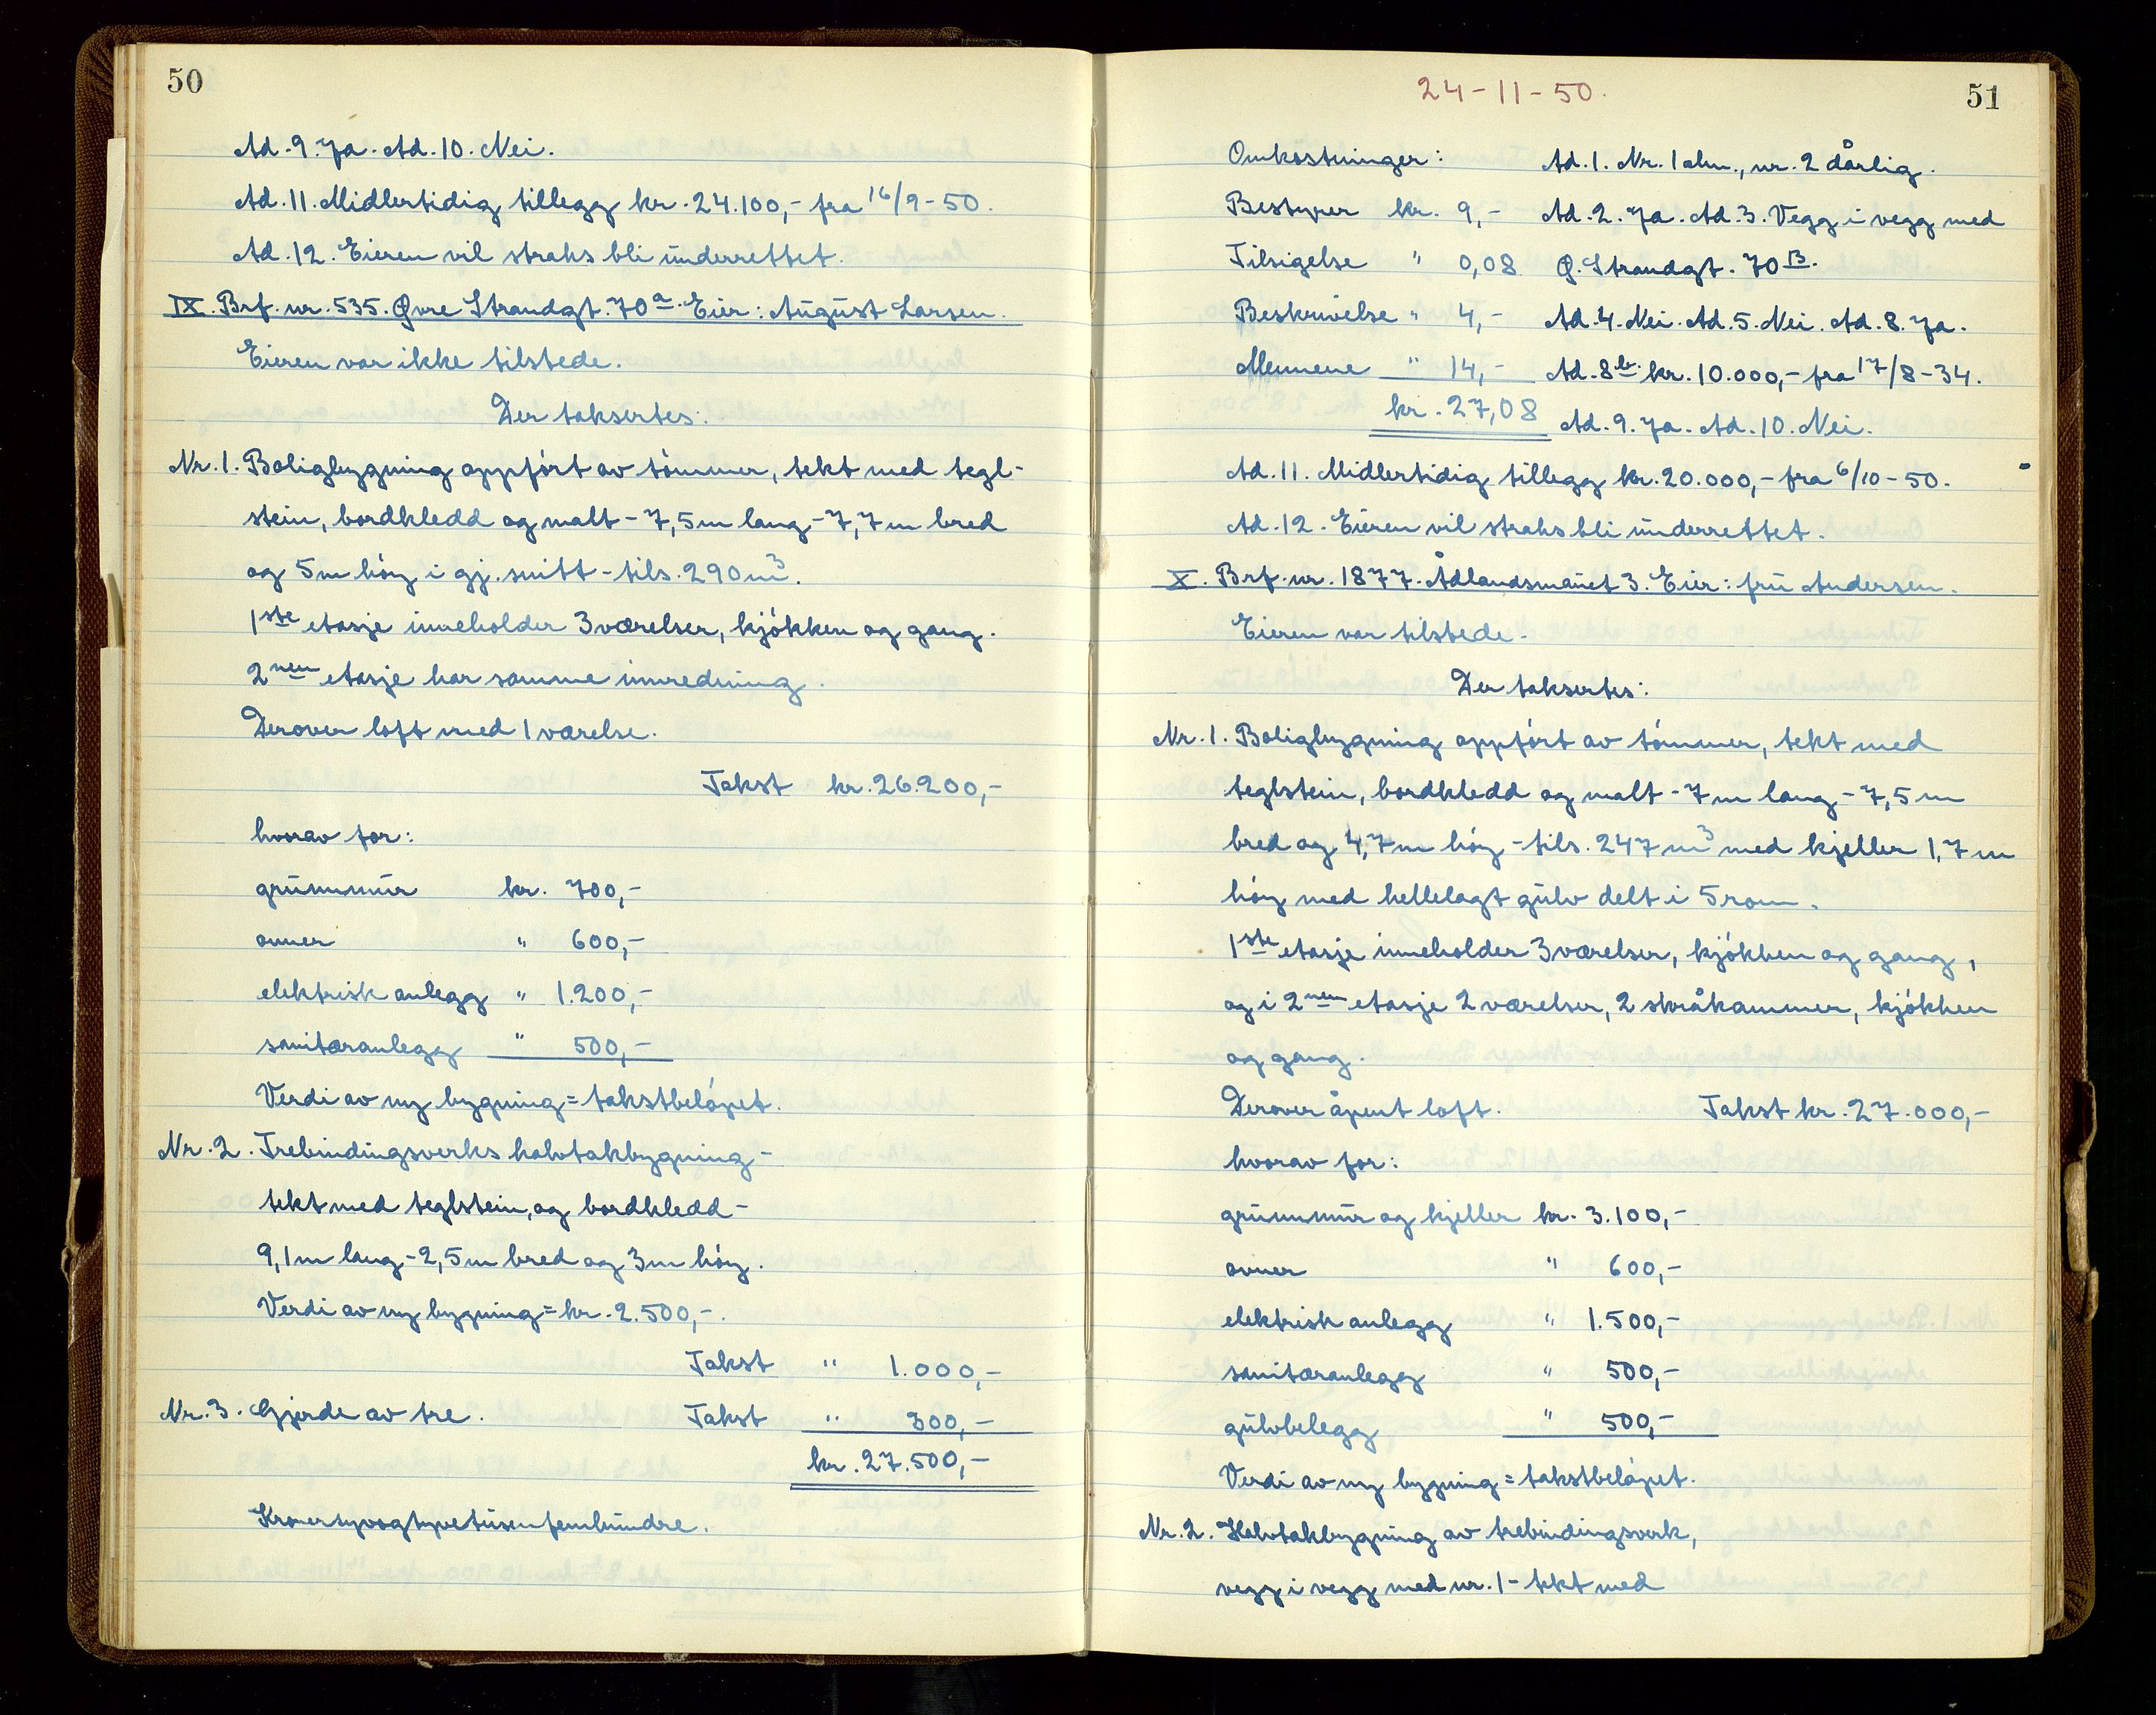 50
Ad. 9. Ja. Ad. 10. Nei.
Ad. 11. Midlertidig tillegg kr. 24.100,- fra 16/9-50.
Ad. 12. Eieren vil straks bli underrettet.
IX. Brf. nr. 535. Øvre Strandgt. 70a. Eier: August Larsen.
Eieren var ikke tilstede.
Der taksertes:
Nr. 1. Boligbygning oppført av tømmer, tekt med tegl-
stein, bordkledd og malt - 7,5 m lang - 7,7 m bred
og 5 m høy i gj. snitt - tils. 290 m³.
1ste etasje inneholder 3 værelser, kjøkken og gang.
2nen etasje har samme innredning.
Derover loft med 1 værelse.
Takst kr. 26.200,-
hvorav for:
grunnmur kr. 700,-
ovner " 600,-
elektrisk anlegg " 1.200,-
sanitæranlegg " 500,-
Verdi av ny bygning = takstbeløpet.
Nr. 2. Trebindingsverks halvtakbygning -
tekt med teglstein, og bordkledd -
9,1 m lang - 2,5 m bred og 3 m høy.
Verdi av ny bygning = kr. 2.500,-.
Takst " 1.000,-
Nr. 3. Gjerde av tre. Takst " 300,-
kr. 27.500,-
Kronersyvogtyvetusenfemhundre.
24-11-50.
51
Omkostninger: Ad. 1. Nr. 1 alm., nr. 2 dårlig.
Bestyrer kr. 9,- Ad. 2. Ja. Ad. 3. Vegg i vegg med
Tilsigelse " 0,08 Ø. Strandgt. 70B.
Beskrivelse " 4,- Ad. 4. Nei. Ad. 5. Nei. Ad. 8. Ja.
Mennene " 14,- Ad. 8b. kr. 10.000,- fra 17/8-34.
kr. 27,08 Ad. 9. Ja. Ad. 10. Nei.
Ad. 11. Midlertidig tillegg kr. 20.000,- fra 6/10-50.
Ad. 12. Eieren vil straks bli underrettet.
X. Brf. nr. 1877. Ådlandsmauet 3. Eier: fru Andersen.
Eieren var tilstede.
Der taksertes:
Nr. 1. Boligbygning oppført av tømmer, tekt med
teglstein, bordkledd og malt - 7 m lang - 7,5 m
bred og 4,7 m høy - tils. 247 m³ med kjeller 1,7 m
høy med hellelagt gulv delt i 5 rom.
1ste etasje inneholder 3 værelser, kjøkken og gang,
og i 2nen etasje 2 værelser, 2 skråkammer, kjøkken
og gang.
Derover åpent loft. Takst kr. 27.000,-
hvorav for:
grunnmur og kjeller kr. 3.100,-
ovner " 600,-
elektrisk anlegg " 1.500,-
sanitæranlegg " 500,-
gulvbelegg " 500,-
Verdi av ny bygning = takstbeløpet.
Nr. 2. Halvtakbygning av trebindingsverk,
vegg i vegg med nr. 1 - tekt med